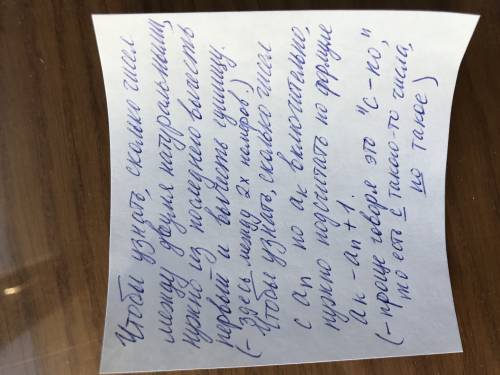 Чтобы узнать, сколько чисел
между двумя натуральными,
нужно из последнего вычесть
первый и вычесть единицу.
(- Здесь между 2х номеров.)
Чтобы узнать, сколько чисел
с an по ак включительно,
нужно подсчитать по формуле
ак - an + 1.
(- проще говоря это "с - по"
то есть с такого-то числа,
по такое)